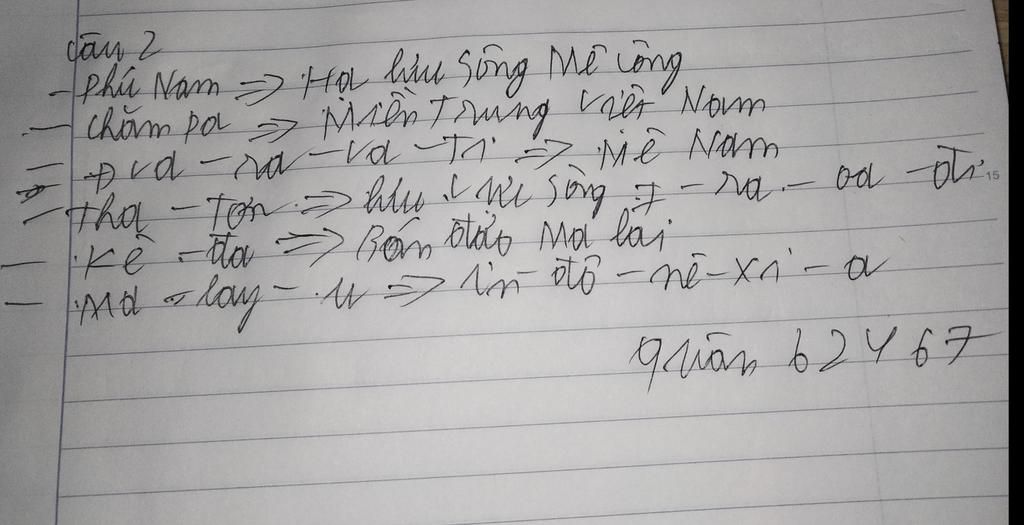 Câu 2
- Phù Nam => Hạ lưu Sông Mê Công
- Chăm pa => Miền Trung Việt Nam
- Đva - ra - va - Ti => Mê Nam
- Tha - Tơn => lưu vực Sông I - ra - oa - đi
15
- Kê - đa => Bán đảo Ma lai
- Ma - lay - u => in - đô - nê - xi - a
quân 62467